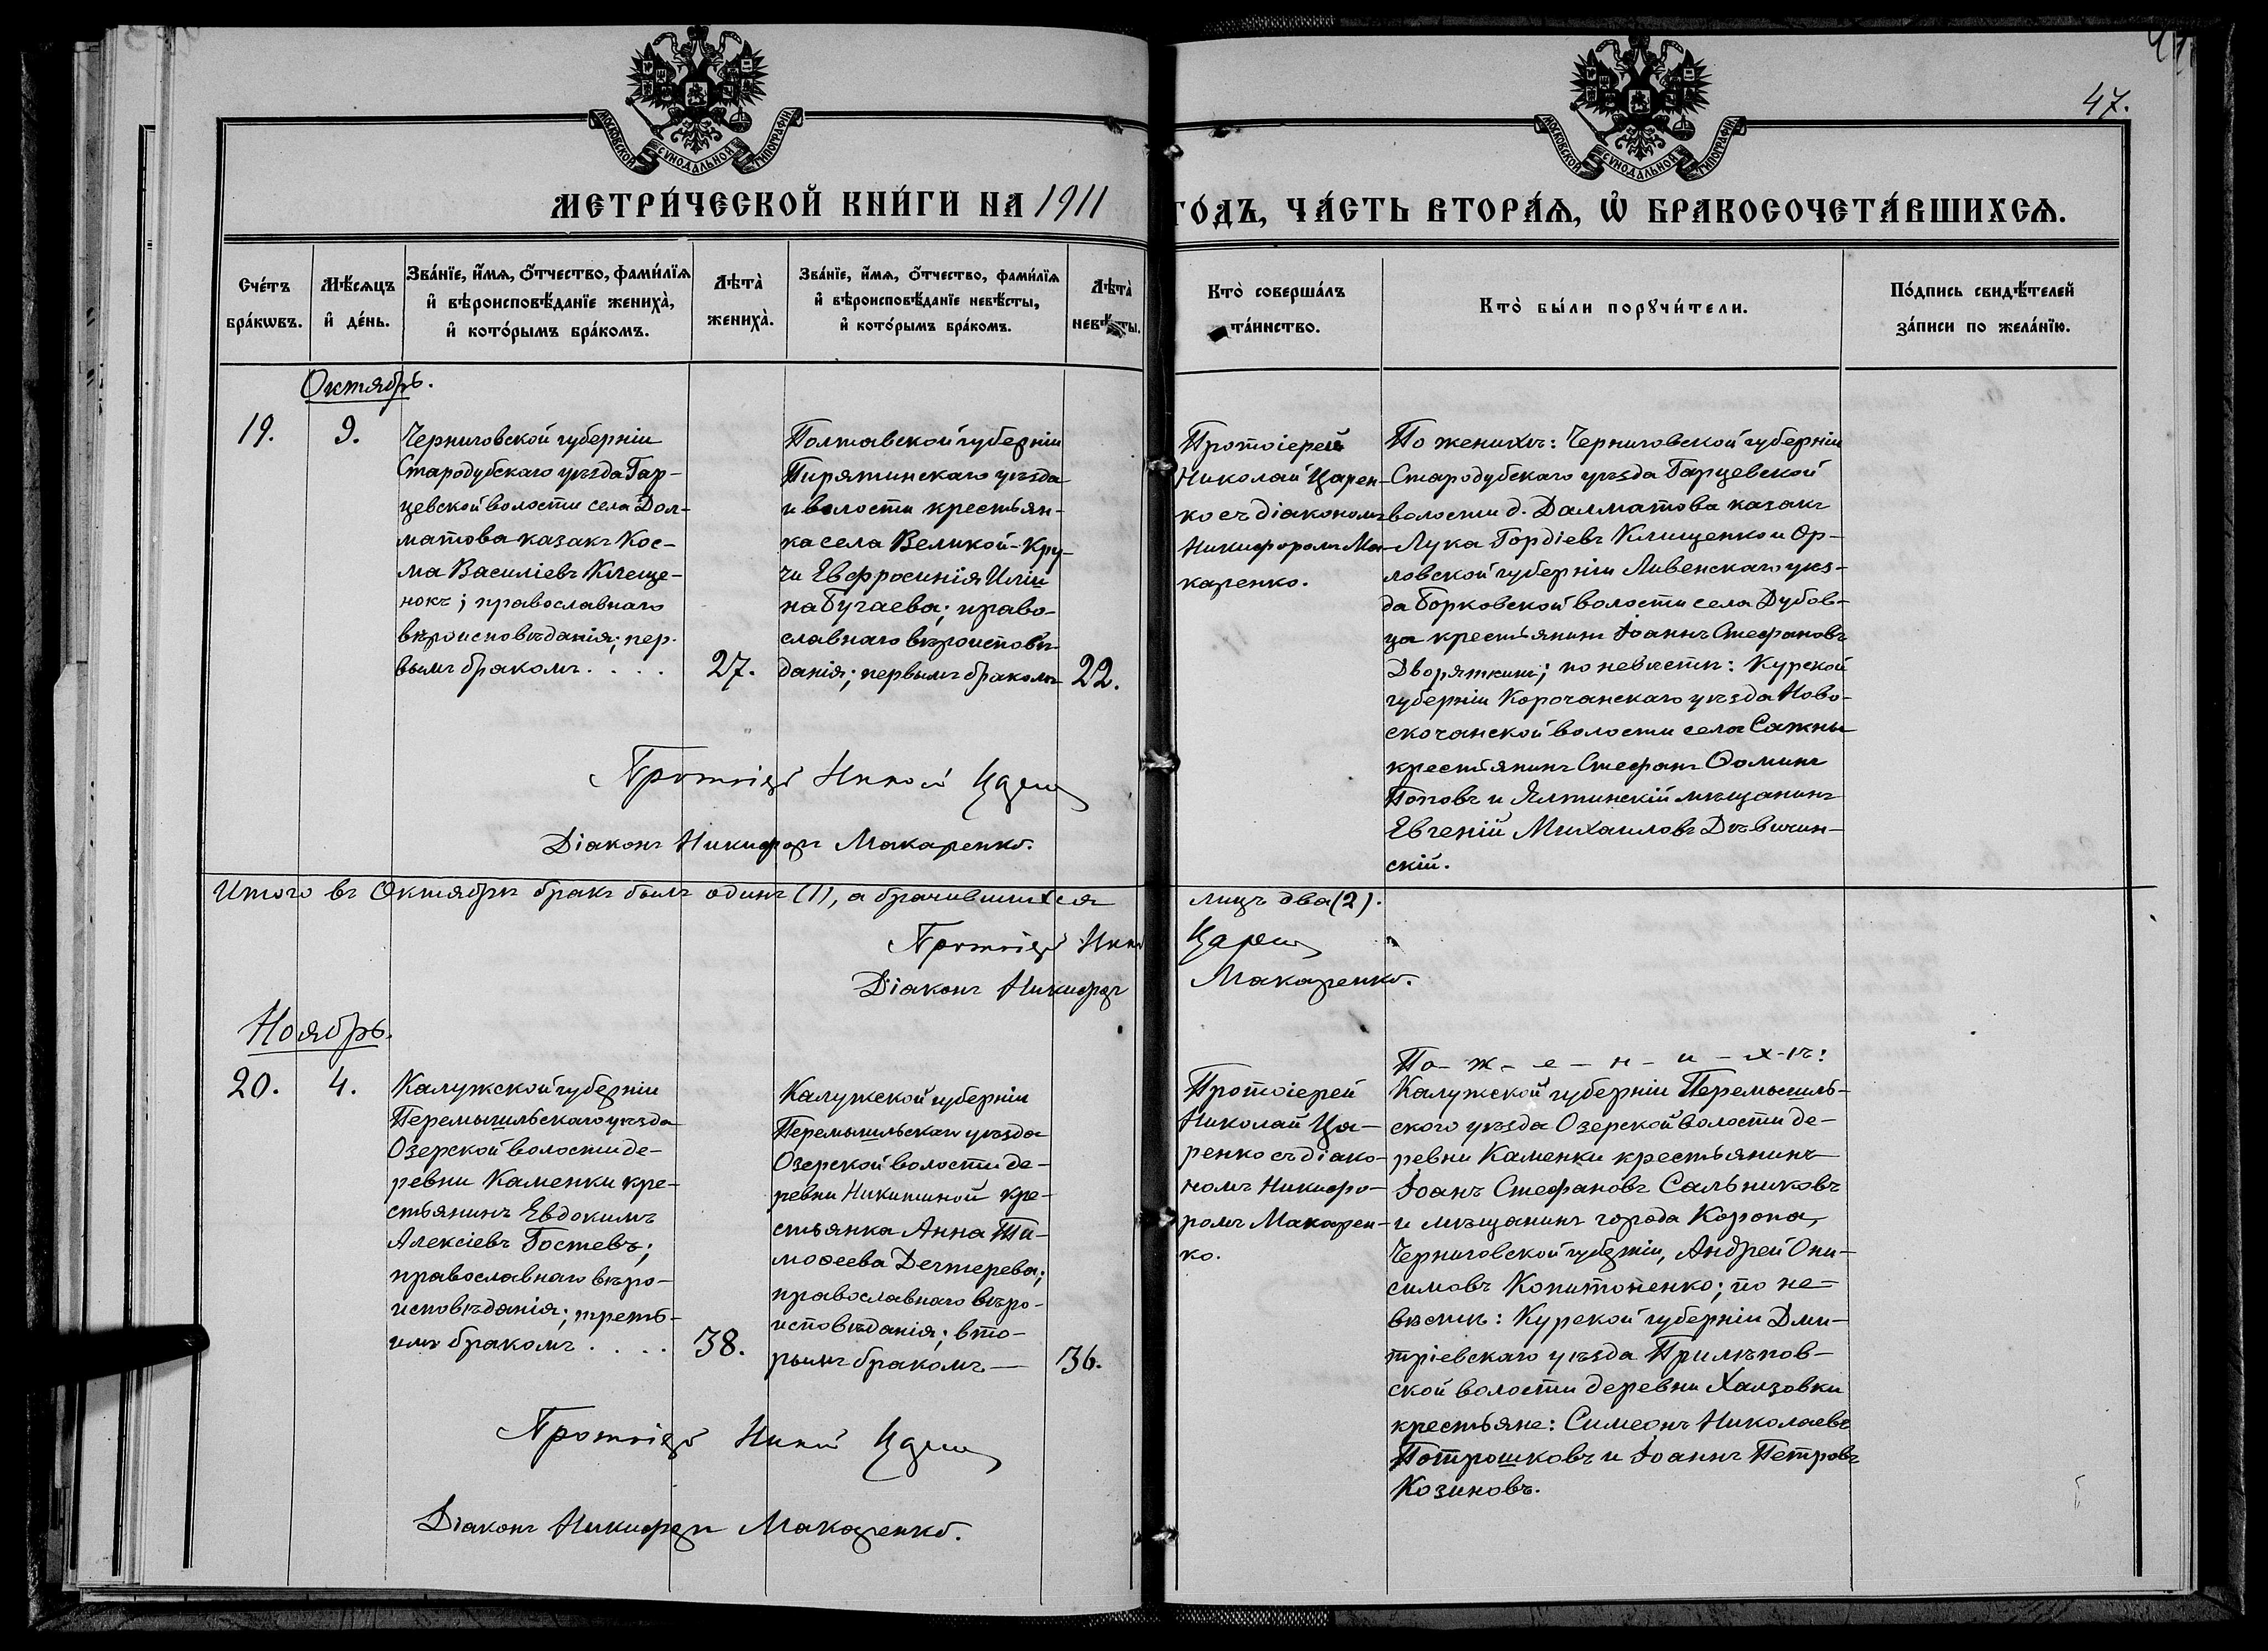 47.
МОСКОВСКОЙ СѴНОДАЛЬНОЙ ТИПОГРАФІИ
МОСКОВСКОЙ СѴНОДАЛЬНОЙ ТИПОГРАФІИ
МЕТРИ́ЧЕСКОЙ КНИ́ГИ НА 1911 ГО́ДЪ, ЧА́СТЬ ВТОРА́Ѧ, Ѽ БРАКОСОЧЕТА́ВШИХСѦ.
Сче́тъ
бра́кѡвъ.
Мѣ́сѧцъ
и҆ де́нь.
Зва́нїе, и҆́мѧ, ѻ҆́тчество, фами́лїѧ
и҆ вѣроисповѣ́данїе жениха̀,
и҆ кото́рымъ бра́комъ.
Лѣта̀
жениха̀.
Зва́нїе, и҆́мѧ, ѻ҆́тчество, фами́лїѧ
и҆ вѣроисповѣ́данїе невѣ́сты,
и҆ кото́рымъ бра́комъ.
Лѣта̀
невѣ́сты.
Кто̀ соверша́лъ
та́инство.
Кто̀ бы́ли порꙋчи́тели.
По́дпись свидѣ́телей
за́писи по жела́нїю.
Октябрь.
19.
9.
Черниговской губерніи
Стародубскаго уѣзда Гар-
цевской волости села Дол-
матова казакъ Кос-
ма Василіевъ Клеще-
нокъ; православнаго
вѣроисповѣданія; пер-
вымъ бракомъ. . . .
27.
Полтавской губерніи
Пирятинскаго уѣзда
и волости крестьян-
ка села Великой-Кру-
чи Евфросинія Иліи
на Бугаева; право-
славнаго вѣроисповѣ-
данія; первымъ бракомъ
22.
Протоіерей
Николай Царен-
ко съ діакономъ
Никифоромъ Ма-
каренко.
По женихѣ: Черниговской губерніи
Стародубскаго уѣзда Гарцевской
волости д. Далматова казакъ
Лука Гордіевъ Клищенко и Ор-
ловской губерніи Ливенскаго уѣз-
да Борковской волости села Дубов-
ца крестьянинъ Іоаннъ Стефановъ
Дворяткинъ; по невѣстѣ: Курской
губерніи Корочанскаго уѣзда Ново-
скочанской волости села Сажны
крестьянинъ Стефанъ Ѳоминъ
Поповъ и Ялтинскій мѣщанинъ
Евгеній Михаиловъ Дѣвичин-
скій.
Протоіерей Николай Царенко
Діаконъ Никифоръ Макаренко.
Итого въ Октябрѣ бракъ былъ одинъ (1), а брачившихся лицъ два (2).
Протоіерей Николай Царенко
Діаконъ Никифоръ Макаренко.
Ноябрь.
20.
4.
Калужской губерніи
Перемышльскаго уѣзда
Озерской волости де-
ревни Каменки кре-
стьянинъ Евдокимъ
Алексіевъ Гостевъ;
православнаго вѣро-
исповѣданія; треть-
имъ бракомъ . . . .
38.
Калужской губерніи
Перемышльскаго уѣзда
Озерской волости де-
ревни Никитиной кре-
стьянка Анна Ти-
моѳеева Дегтерева;
православнаго вѣро-
исповѣданія; вто-
рымъ бракомъ —
36.
Протоіерей
Николай Ца-
ренко съ діако-
номъ Никифо-
ромъ Макарен-
ко.
По - ж - е - н - и - х-ѣ:
Калужской губерніи Перемышль-
ского уѣзда Озерской волости де-
ревни Каменки крестьянинъ
Іоанъ Стефановъ Сальниковъ
и мѣщанинъ города Коропа,
Черниговской губерніи, Андрей Они-
симовъ Копитоненко; по не-
вѣстѣ: Курской губерніи Дми-
тріевскаго уѣзда Прилѣпов-
ской волости деревни Халзовки
крестьяне: Симеонъ Николаевъ
Потрошковъ и Іоаннъ Петровъ
Козиновъ.
Протоіерей Николай Царенко
Діаконъ Никифоръ Макаренко.